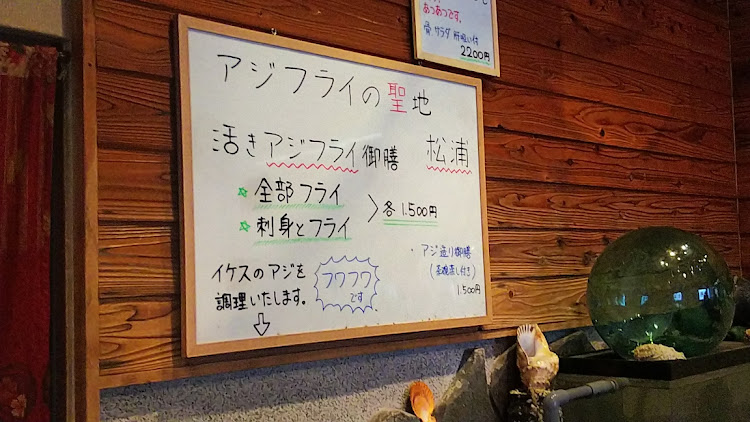 あつあつです。
サラダ 肝吸い付
2200円
アジフライの聖地
活きアジフライ御膳 松浦
☆ 全部フライ
☆ 刺身とフライ
> 各 1.500円
・ アジ造り御膳
(茶碗蒸し付き)
1.500円
イケスのアジを
調理いたします。
フワフワ
です